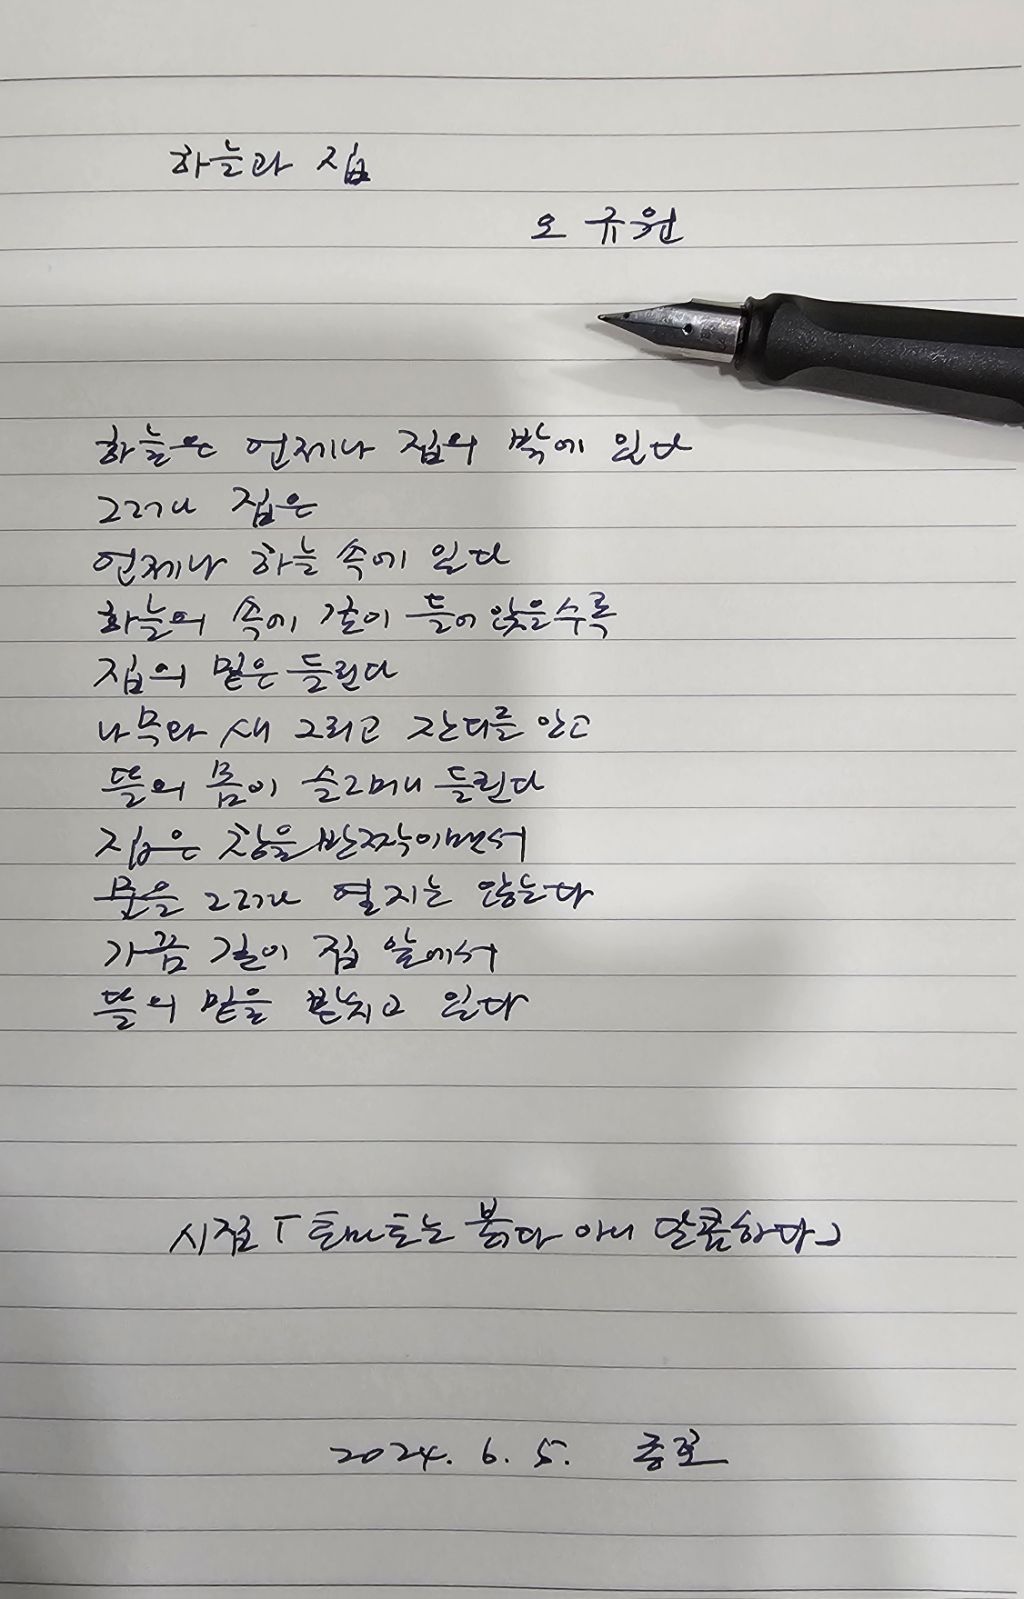 하늘과 집
오 규원
하늘은 언제나 집의 밖에 있다
그러나 집은
언제나 하늘 속에 있다
하늘의 속에 깊이 들어 앉을수록
집의 밑은 들린다
나무와 새 그리고 잔디를 안고
뜰의 몸이 슬그머니 들린다
집은 창을 반짝이면서
문을 그러나 열지는 않는다
가끔 길이 집 앞에서
뜰의 밑을 받치고 있다
시집 「토마토는 붉다 아니 달콤하다」
2024. 6. 5.